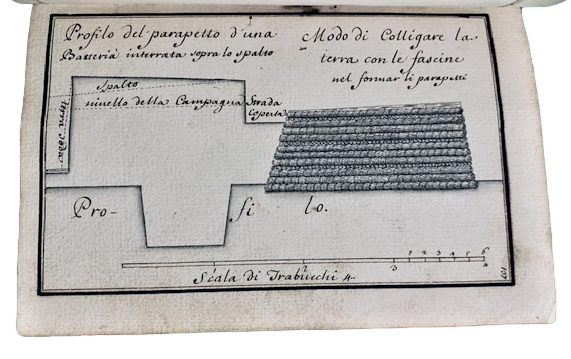 Profilo del parapetto d'una
Batteria interrata sopra lo spalto
Modo di Colligare la
terra con le fascine
nel formar li parapetti
spalto
nivello della Campagna
Strada
coperta
Pro-
fi
lo.
1 2 3 4 5 6
3 4
Scala di Trabucchi 4.